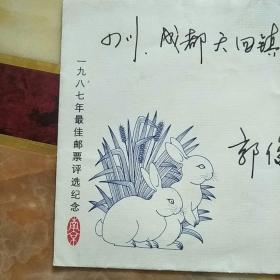 四川.成都天回镇
郭
一九八七年最佳邮票评选纪念
南京